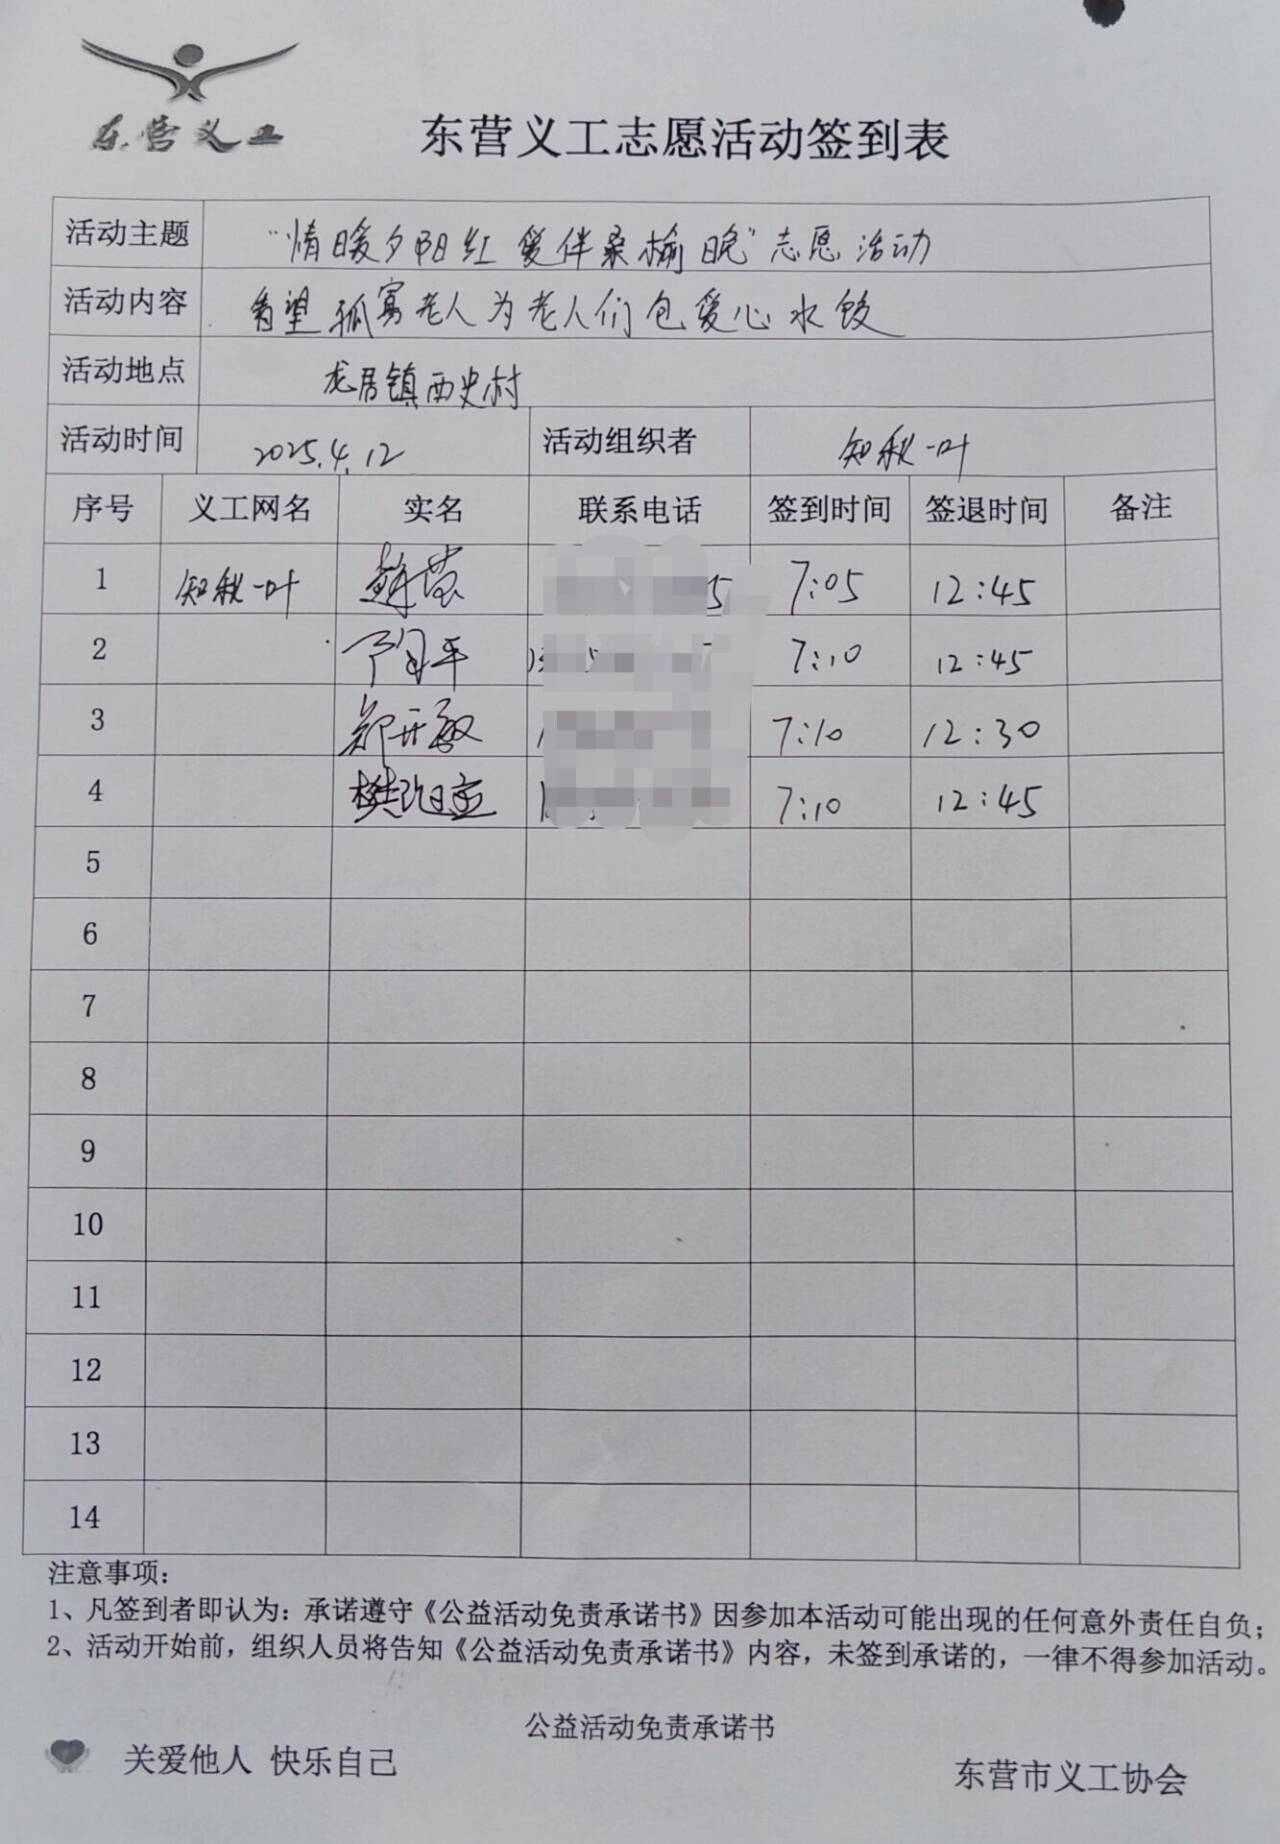 东营义工
东营义工志愿活动签到表
活动主题 “情暖夕阳红 爱伴桑榆晚”志愿活动
活动内容 看望孤寡老人为老人们包爱心水饺
活动地点 龙居镇西史村
活动时间 2025.4.12 活动组织者 知秋一叶
序号 义工网名 实名 联系电话 签到时间 签退时间 备注
1 知秋一叶 5 7:05 12:45
2 7:10 12:45
3 郑开敏 7:10 12:30
4 7:10 12:45
5
6
7
8
9
10
11
12
13
14
注意事项：
1、凡签到者即认为：承诺遵守《公益活动免责承诺书》因参加本活动可能出现的任何意外责任自负；
2、活动开始前，组织人员将告知《公益活动免责承诺书》内容，未签到承诺的，一律不得参加活动。
公益活动免责承诺书
关爱他人 快乐自己
东营市义工协会